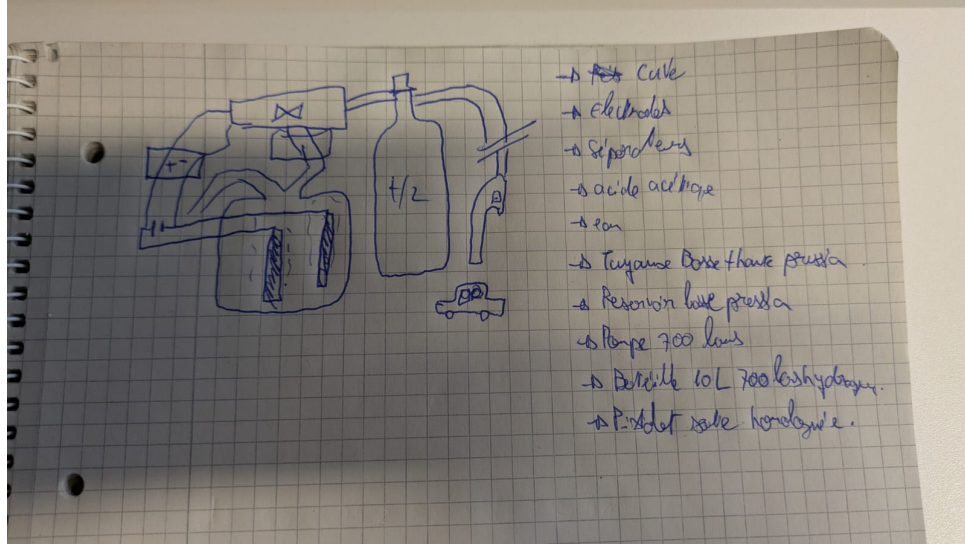 + -
H/2
→ Cuve
→ Electrodes
→ Séparateurs
→ acide acétique
→ eau
→ Tuyaux Basse + haute pression
→ Reservoir basse pression
→ Pompe 700 bars
→ Bouteille 10L 700 bars hydrogène.
→ Pistolet homologuée.